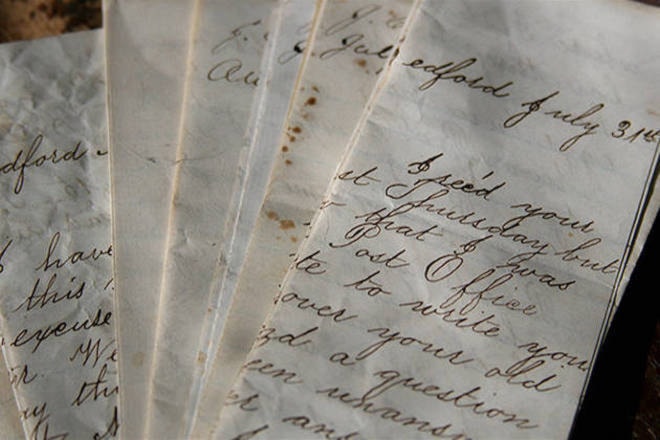 dford
I have
this
excuse
r. We
ay th
J.
Au
J.
Jul
edford July 31st
I rec'd your
st Thursday but
that I was
Post Office
te to write you
over your old
nd a question
een unansw